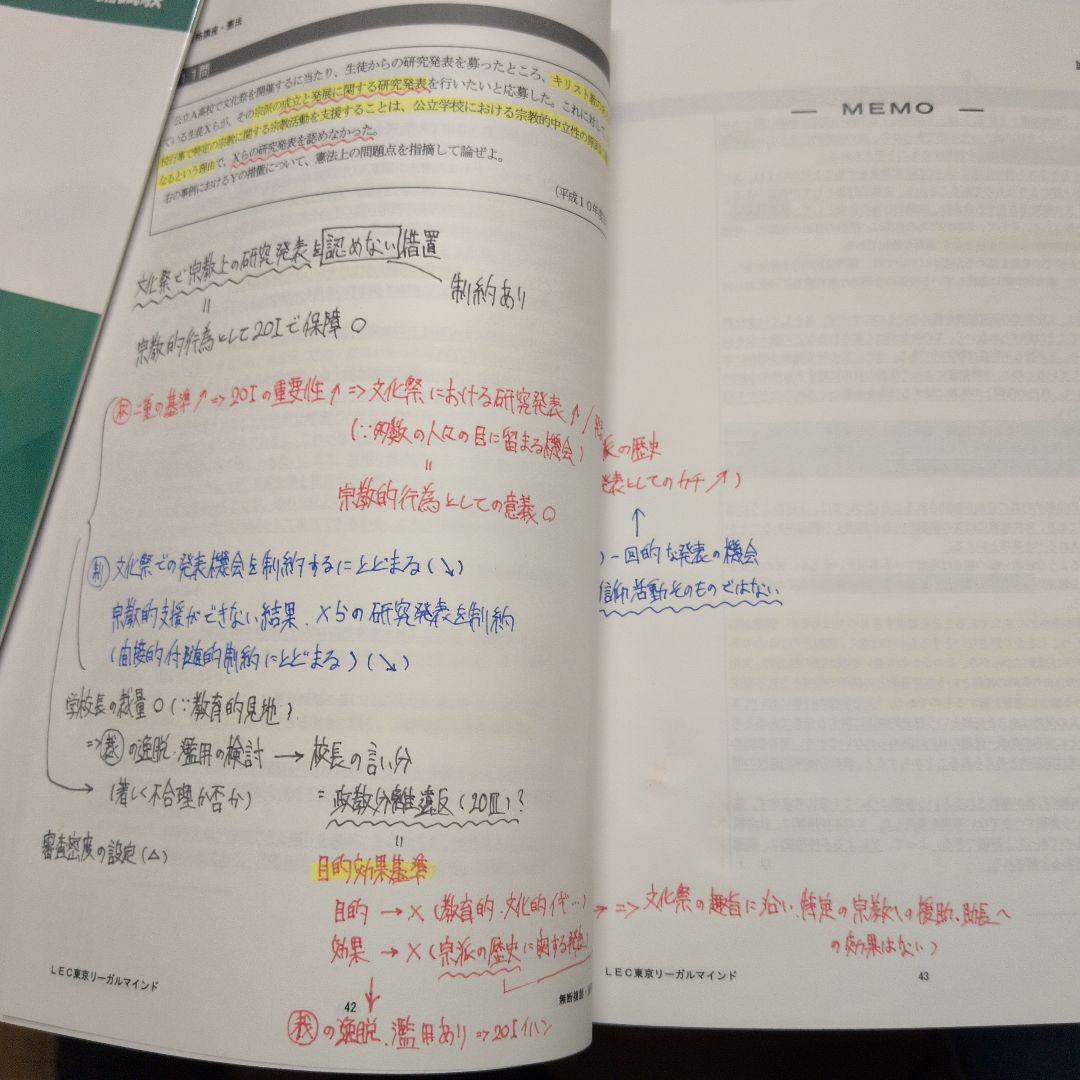 試験
講座・憲法
1問
公立A高校で文化祭を開催するに当たり、生徒からの研究発表を募ったところ、キリスト教の
ている生徒Xらが、その宗派の成立と発展に関する研究発表を行いたいと応募した。これに対して、
校行事で特定の宗教に関する宗教活動を支援することは、公立学校における宗教的中立性の原則に
なるという理由で、Xらの研究発表を認めなかった。
右の事例におけるYの措置について、憲法上の問題点を指摘して論ぜよ。
(平成10年度
文化祭で宗教上の研究発表を認めない措置
制約あり
=
宗教的行為として20Iで保障○
二重の基準↗⇒20Iの重要性↗⇒文化祭における研究発表↑/
(∵多数の人々の目に留まる機会)
派の歴史
発表としてのカチ↗)
=
宗教的行為としての意義○
↑
制 文化祭での発表機会を制約するにとどまる(↘)
)一回的な発表の機会
宗教的支援ができない結果、Xらの研究発表を制約
信仰活動そのものではない
(間接的付随的制約にとどまる)(↘)
学校長の裁量○(∵教育的見地)
⇒裁の逸脱・濫用の検討→校長の言い分
(著しく不合理か否か)
=政教分離違反(20Ⅲ)?
審査密度の設定(△)
=
目的効果基準
目的→×(教育的、文化的イ
⇒文化祭の趣旨に沿い、特定の宗教への援助、助長へ
の効果はない)
効果→×(宗派の歴史に関する発表)
LEC東京リーガルマインド
42
無断複製・
裁の逸脱、濫用あり⇒20Iイハン
— MEMO —
LEC東京リーガルマインド
43